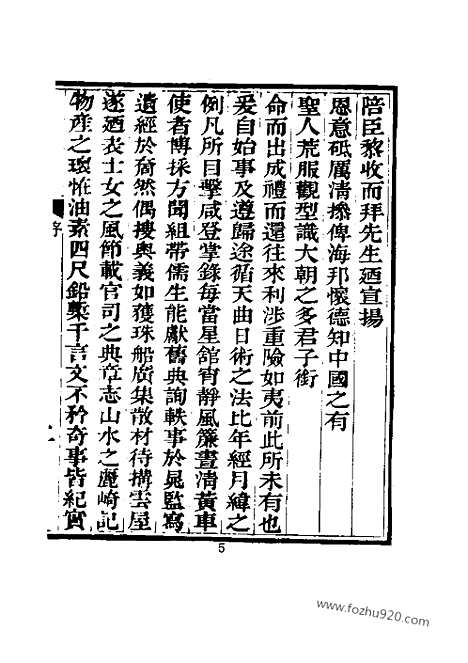 陪臣黎收而拜先生廼宣揚
恩意砥厲淸操俾海邦懷德知中國之有
聖人荒服觀型識大朝之多君子銜
命而出成禮而還往來利涉重險如夷前此所未有也
爰自始事及遵歸途循天曲日術之法比年經月緯之
例凡所目擊咸登掌錄每當星館宵靜風簾晝淸黃車
使者博採方聞組帶儒生能獻舊典詢軼事於晁監寫
遺經於奝然偶搜奧義如獲珠船廣集散材待搆雲屋
遂廼表士女之風節載官司之典章志山水之麗崎記
物產之瓌恠油素四尺鉛槧千言文不矜奇事皆紀實
序
二
5
www.fozhu920.com